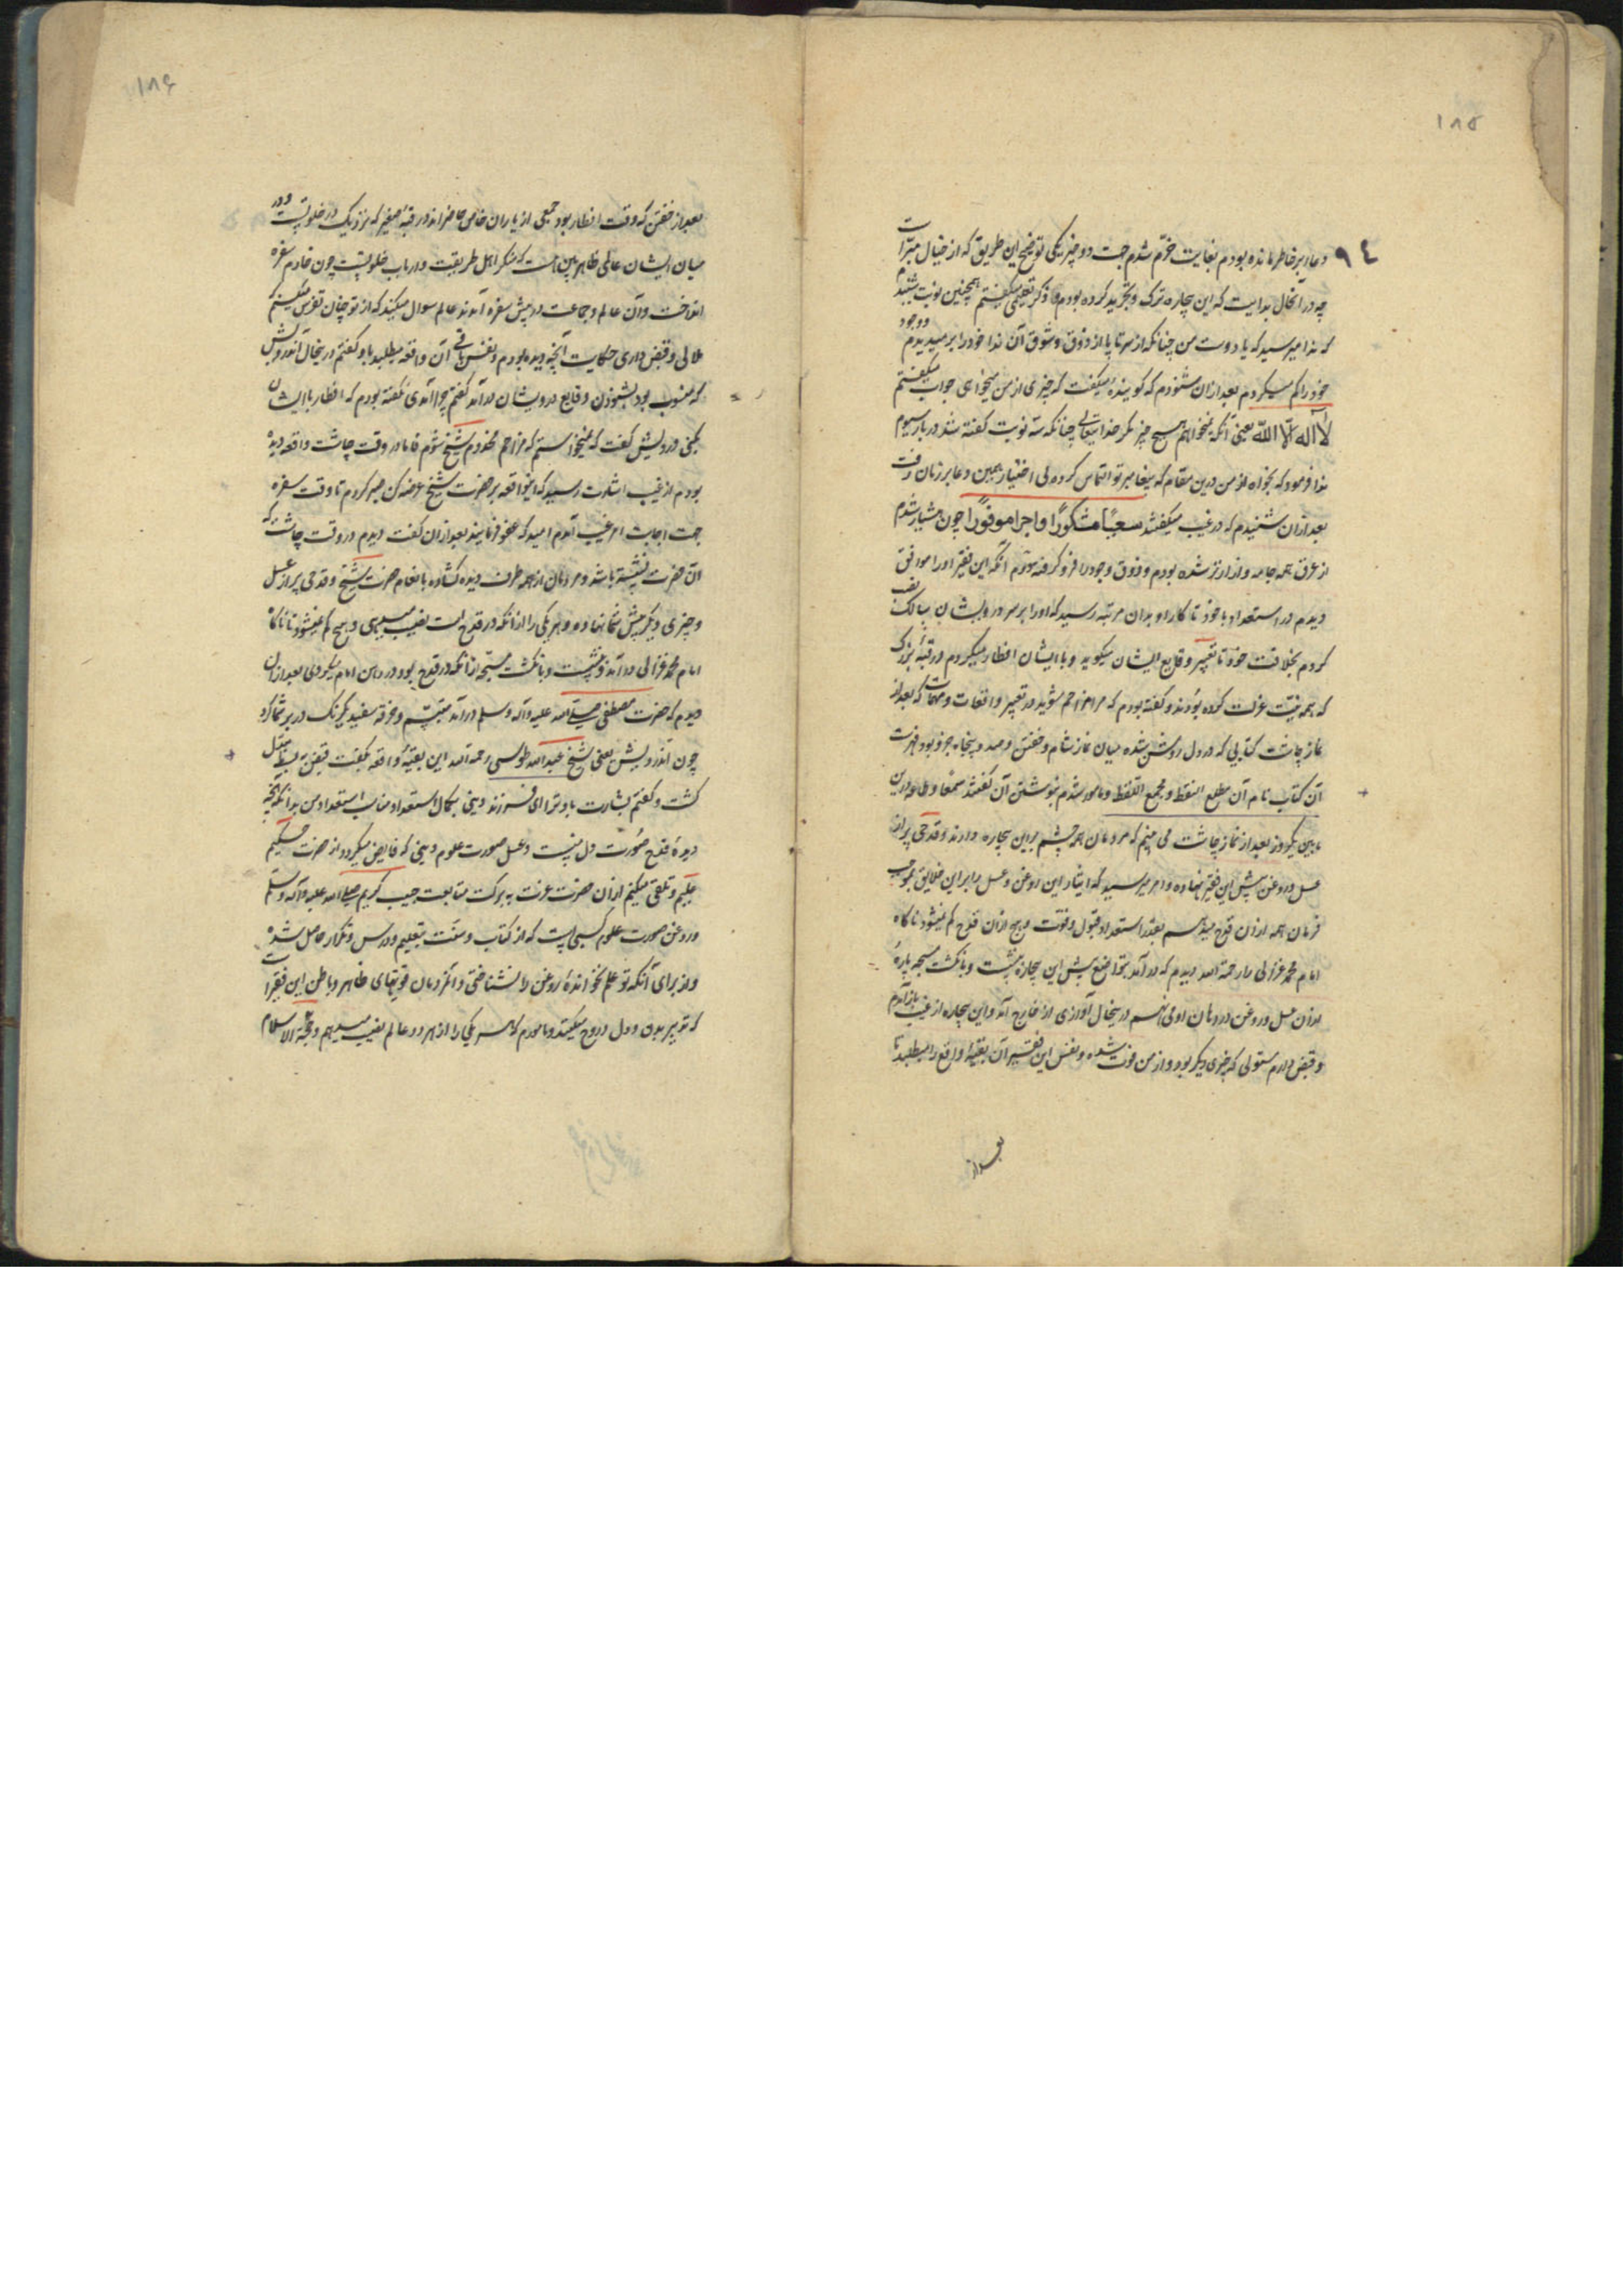 ۱۸۵
۹۴
و عا بر خاطر مانده بودم بغایت خرّم شدم جهت دو چیز یکی توضیح این طریق که از خیال مبرّاست
چه در آنحال بدایت که این بیچاره ترک و تجرید کرده بودم و ذکر تعلیمی میگفتم همچنین نوبت شنیدم
که ندا میرسید که یا دوست من چنانکه از سر تا پا از ذوق و شوق آن ندا خود را بر میدیدم و وجود
خود را گم میکردم بعد از آن شنودم که گوینده میگفت که چیزی از من میخواهی جواب میگفتم
لا اله الّا اللّه یعنی آنکه نمیخواهم هیچ چیز مگر خدایتعالی چنانکه سه نوبت گفته شد در بار سیوم
ندا فرمود که بخواه از من درین مقام که پیغامبر تو التماس کرده لی اختیار همین دعا بر زبان رفت
بعد از آن شنیدم که در غیب میگفتند سعیًا مشکورًا و اجرا موفورًا چون هشیار شدم
از عرق همه جامه و ازار تر شده بودم و ذوق وجود را فرو گرفته دوّم آنکه این فقیر او را موافق
دیدم در استعداد با خود تا کار او بدان مرتبه رسید که او را بر سر درویشان سالک نصب
کردم بخلافت خود تا تعبیر وقایع ایشان میگوید و با ایشان افطار میکردم در قبّه بزرگ
که همه نیّت عزلت کرده بودند و گفته بودم که مرا مزاحم مشوید در تعبیر واقعات و مهمات که بعد از
نماز چاشت کتابی که در دل روشن شده میان نماز شام و خفتن و صد و پنجاه جزو بود فهرست
آن کتاب نام آن مطلع النقط و مجمع اللفظ و مامور شدم بنوشتن آن گفتند سمعا و طاعه درین
ما بین یکروز بعد از نماز چاشت می بینم که مردمان همه چشم براین بیچاره دارند و قدحی پر از
عسل و روغن پیش این فقیر نهاده و امر میرسید که ایثار این روغن و عسل را بر این خلایق بموجب
فرمان همه از آن قدح میدهم بقدر استعداد قبول و قوّت و هیچ از آن قدح کم نمیشود ناگاه
امام محمد غزالی را رحمة الله دیدم که در آمد بتواضع پیش این بیچاره بنشست و بانگشت مسبحه پارهٔ
از آن عسل و روغن در دهان او می نهم درینحال آوازی از خارج آمد و این بیچاره از غیب باز آمدم
و قبض دارم مستولی که چیزی دیگر بود و از من فوت شده و نفس این فقیر آن بقیّه واقع را میطلبد تا
بعد از
۱۸۶
بعد از خفتن که وقت افطار بود جمعی از یاران خاص حاضراند در قبّه صغیر که نزدیک در خلوتست و در
میان ایشان عالمی ظاهر بین است که منکر اهل طریقت و ارباب خلوتست چون خادم سفره
انداخت و آن عالم و جماعت در پیش سفره آمدند عالم سوال میکند که از تو چنان تفرس میکنم
ملالی و قبض داری حکایت آنچه دیده بودم و نفس باقی آن واقعه میطلبد با او گفتم درینحال اندرویش
که منسوب بود بشنودن وقایع درویشان در آمد گفتم چرا آمدی نگفته بودم که افطار با ایشان
بکن درویش گفت که نمیخواستم که مزاحم مخدوم شیخ شوم فاما در وقت چاشت واقعه دیده
بودم از غیب اشارت رسید که اینواقعه بر حضرت شیخ عرضه کن صبر کردم تا وقت سفره
جهت اجابت امر غیب آمدم امید که عفو فرمایند بعد از آن گفت دیدم در وقت چاشت که
آن حضرت نشسته باشد و مردمان از همه طرف دیده گشاده بانعام حضرت شیخ و قدحی پر از عسل
و چیزی دیگر پیش شما نهاده و هر یکی را از آنکه در قدح است نصیب میدهی و هیچ کم نمیشود تا ناگاه
امام محمد غزالی در آمد و بنشست و بانگشت مسبّحه از آنکه در قدح بود در دهن امام میکردی بعد از آن
دیدم که حضرت مصطفی صلی الله علیه و آله و سلم در آمد متبسّم و خرقه سفید یکرنگ در بر شما کرد
چون اندرویش یعنی شیخ عبدالله طوسی رحمة الله این بقیّهٔ واقعه بگفت قبض به بسط مبدّل
گشت و گفتم بشارت باد ترا ای فرزند دینی بکمال استعداد مناسب استعداد من بدانکه آنچه
دیدهٔ قدح صورت دل منست و عسل صورت علوم دینی که فایض میگردد از حضرت حکیم
علیم و تلقی میکنم از آن حضرت عزت به برکت متابعت حبیب کریم صلی الله علیه و آله و سلم
و روغن صورت علوم کسبی است که از کتاب و سنّت بتعلیم و درس و تکرار حاصل شده
و از برای آنکه تو علم نخواندهٔ روغن را نشناختی و آنمردمان قوتهای ظاهر و باطن این فقیراست
که تدبیر بدن و دل و روح میکنند و مامورم که هر یکی را از هر دو عالم نصیب میدهم و حجّة الاسلام